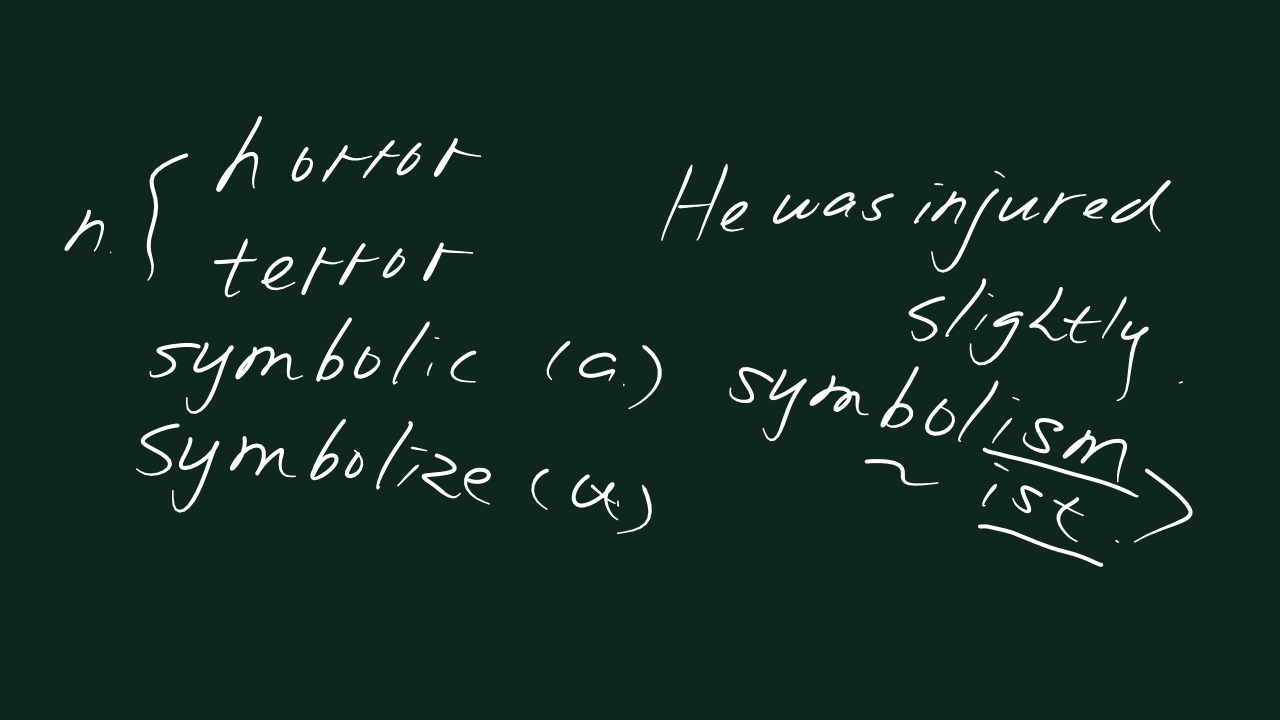 n. { horror
terror
symbolic (a.)
symbolize (a.)
He was injured
slightly.
symbolism
~ ist.